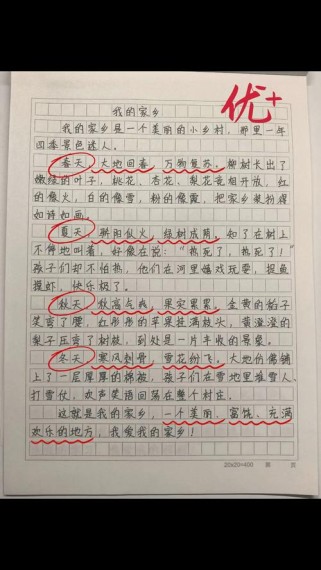 优+
我的家乡
我的家乡是一个美丽的小乡村，那里一年
四季景色迷人。
春天，大地回春，万物复苏。柳树长出了
嫩绿的叶子，桃花、杏花、梨花竞相开放，红
的像火，白的像雪，粉的像霞，把家乡装扮得
如诗如画。
夏天，骄阳似火，绿树成荫，知了在树上
不停地叫着，好像在说：“热死了，热死了！”
孩子们却不怕热，他们在河里嬉戏玩耍，捉鱼
摸虾，快乐极了。
秋天，秋高气爽，果实累累，金黄的稻子
笑弯了腰，红彤彤的苹果挂满枝头，黄澄澄的
梨子压弯了树枝，到处是一片丰收的景象。
冬天，寒风刺骨，雪花纷飞。大地仿佛铺
上了一层厚厚的棉被，孩子们在雪地里堆雪人、
打雪仗，欢声笑语回荡在整个村庄。
这就是我的家乡，一个美丽、富饶、充满
欢乐的地方，我爱我的家乡！
20×20=400 第 页